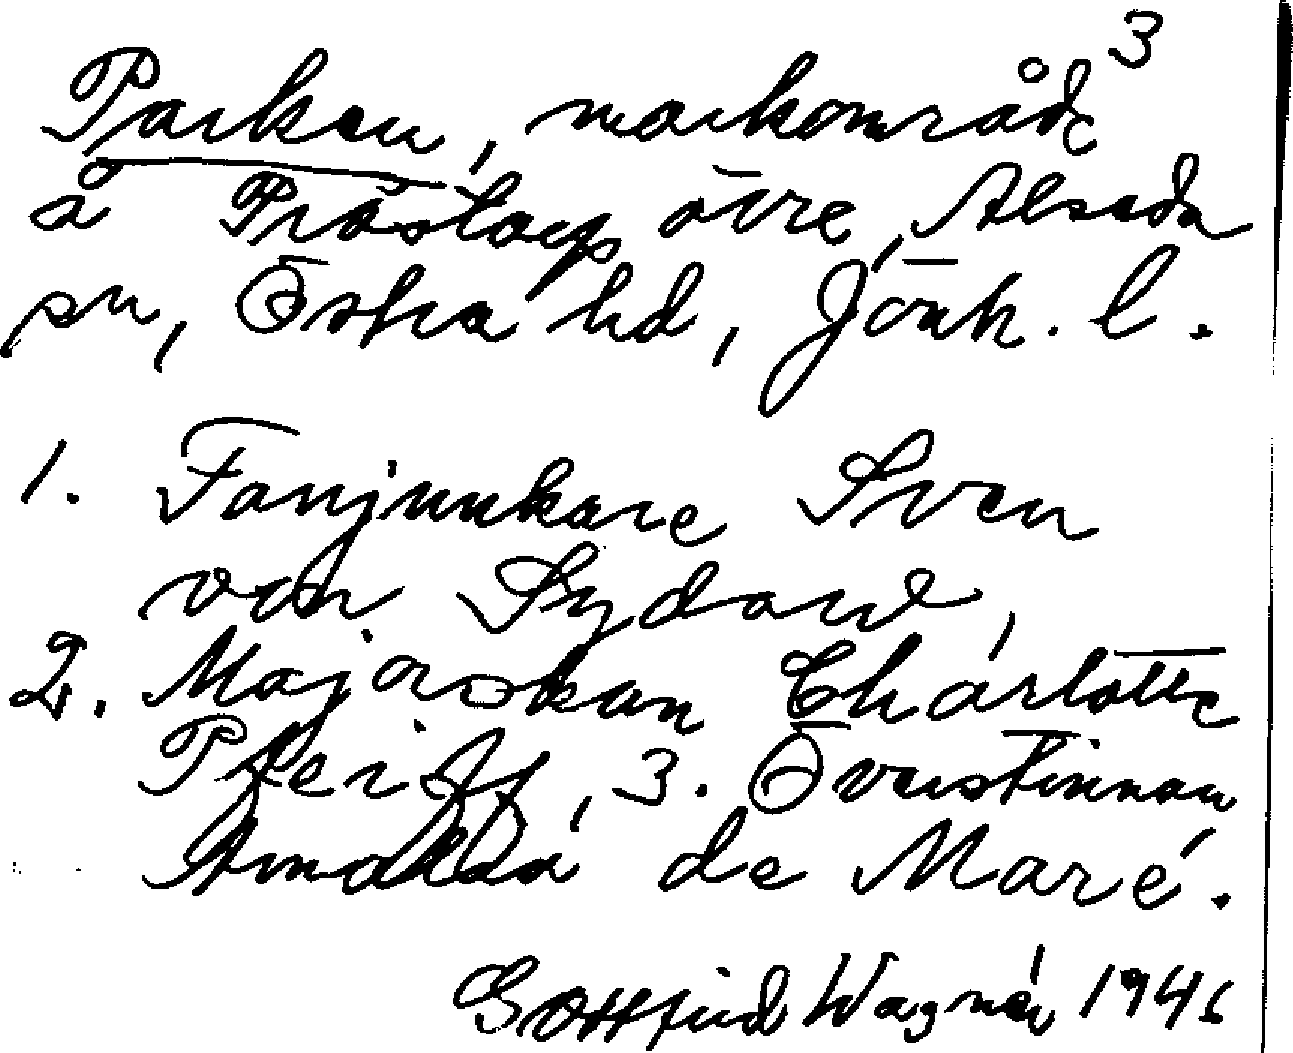 3
Parken, markområde
å Pröstorp övre, Alseda
sn, Östra hd, Jönk. l.
1. Fanjunkare Sven
von Sydow,
2. Majorskan Charlotte
Pfeiff, 3. Överstinnan
Amalda de Maré.
Gottfrid Wagnér 1946